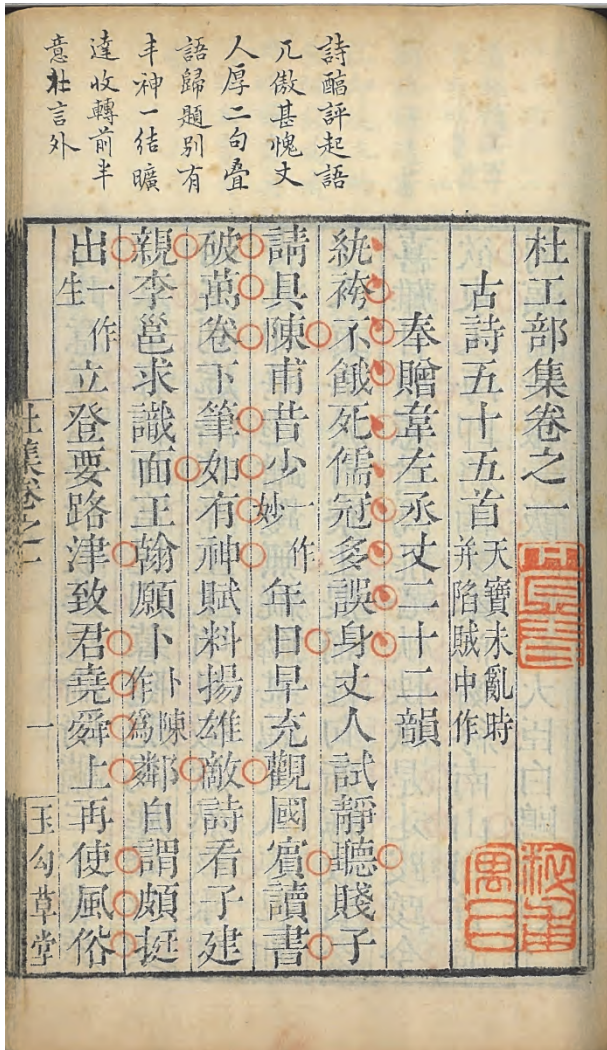 詩醕評起語
兀傲甚愧丈
人厚二句疊
語歸題別有
丰神一結曠
達收轉前半
意在言外
杜工部集卷之一
古詩五十五首天寶未亂時
并陷賊中作
奉贈韋左丞丈二十二韻
紈袴不餓死儒冠多誤身丈人試靜聽賤子
請具陳甫昔少一作妙年日早充觀國賓讀書
破萬卷下筆如有神賦料揚雄敵詩看子建
親李邕求識面王翰願卜卜陳作爲鄰自謂頗挺
出一作生立登要路津致君堯舜上再使風俗
杜集卷之一
一
玉勾草堂